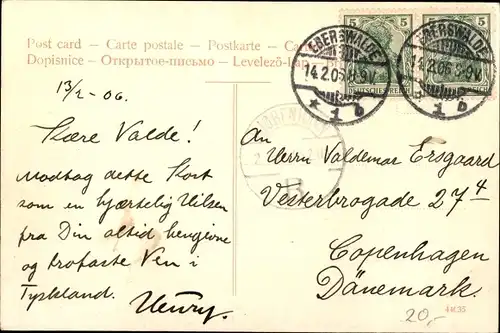 Post card – Carte postale – Postkarte –
Dopisnice – Открытое-письмо – Levelező-Lap –
5 5
DEUTSCHES REICH
EBERSWALDE
14.2.06.8-9V.
* 1 b
EBERSWALDE
14.2.06.8-9V.
* 1 b
13/2 - 06.
Kære Valde!
Modtag dette Kort
som en hjærtelig Hilsen
fra Din altid hengivne
og trofaste Ven i
Tyskland.
Henry.
An
Herrn Valdemar Ersgaard
Vesterbrogade 27 4
Copenhagen
Dänemark.
20,-